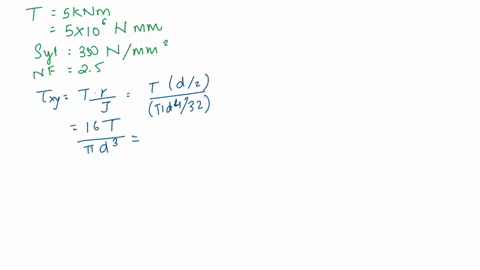 T = 5KNm
= 5×10⁶ N mm
Syt = 350 N/mm²
NF = 2.5
τxy = T·r/J = T(d/2)/(πd⁴/32)
= 16T/πd³ =